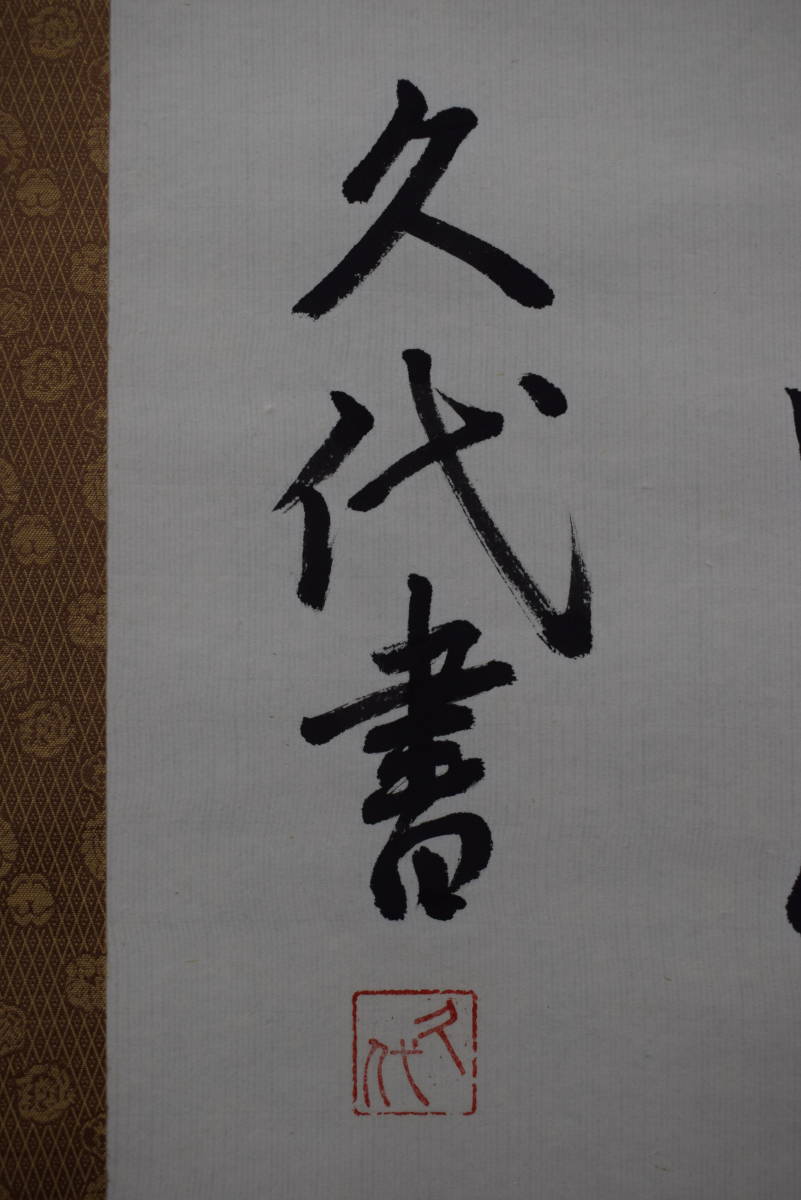 久代書
久代